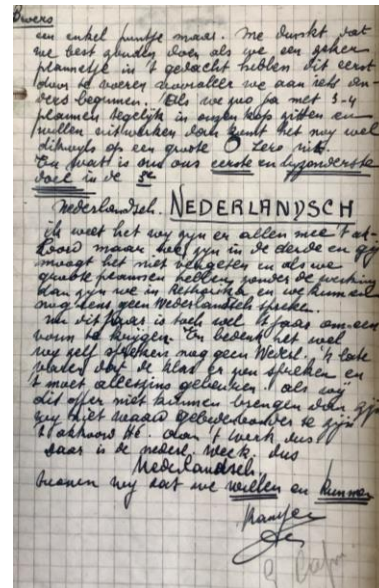 Dwers
een enkel puntje maar. Me dunkt dat
we best zouden doen als we een zeker
plannetje in 't gedacht hebben dit eerst
door te voeren vooraleer we aan iets an-
ders beginnen. Als we zoo pa met 3-4
plannen tegelijk in onzen kop zitten en
willen uitwerken dan komt het nog wel
dikwijls op een groote O zero uit.
En wat is nu ons eerste en byzonderste
doel in de 3e
Nederlandsch. NEDERLANDSCH
ik weet het wy zyn er allen mee 't ak-
koord maar we zyn in de derde en gy
moogt het niet vergeten en als we
groote plannen hebben zonder de werking
dan zyn we in en we kunnen
nog eens geen Nederlandsch spreken.
nu dit jaar is toch wel 't jaar om een
vorm te krygen. En bedenk het wel
wy zelf spreken nog geen Nederl. 'k late
varen dat de klas er zou spreken en
't moet alleszins gebeuren. als wy
dit offer niet kunnen brengen dan zyn
wy niet waard te zyn
't akkoord hé. aan 't werk dus
daar is de nederl. week. dus
Nederlandsch.
toonen wy dat we willen en kunnen